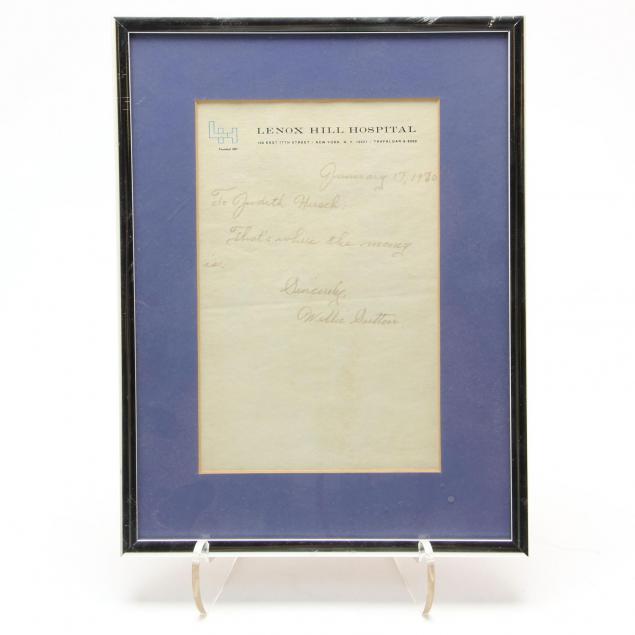 LENOX HILL HOSPITAL
EAST 77TH STREET / NEW YORK, N.Y. 10021 / TRAFALGAR
January 17, 1970
To Judith Hirsch:
That's where the money
is.
Sincerely,
Willie Sutton